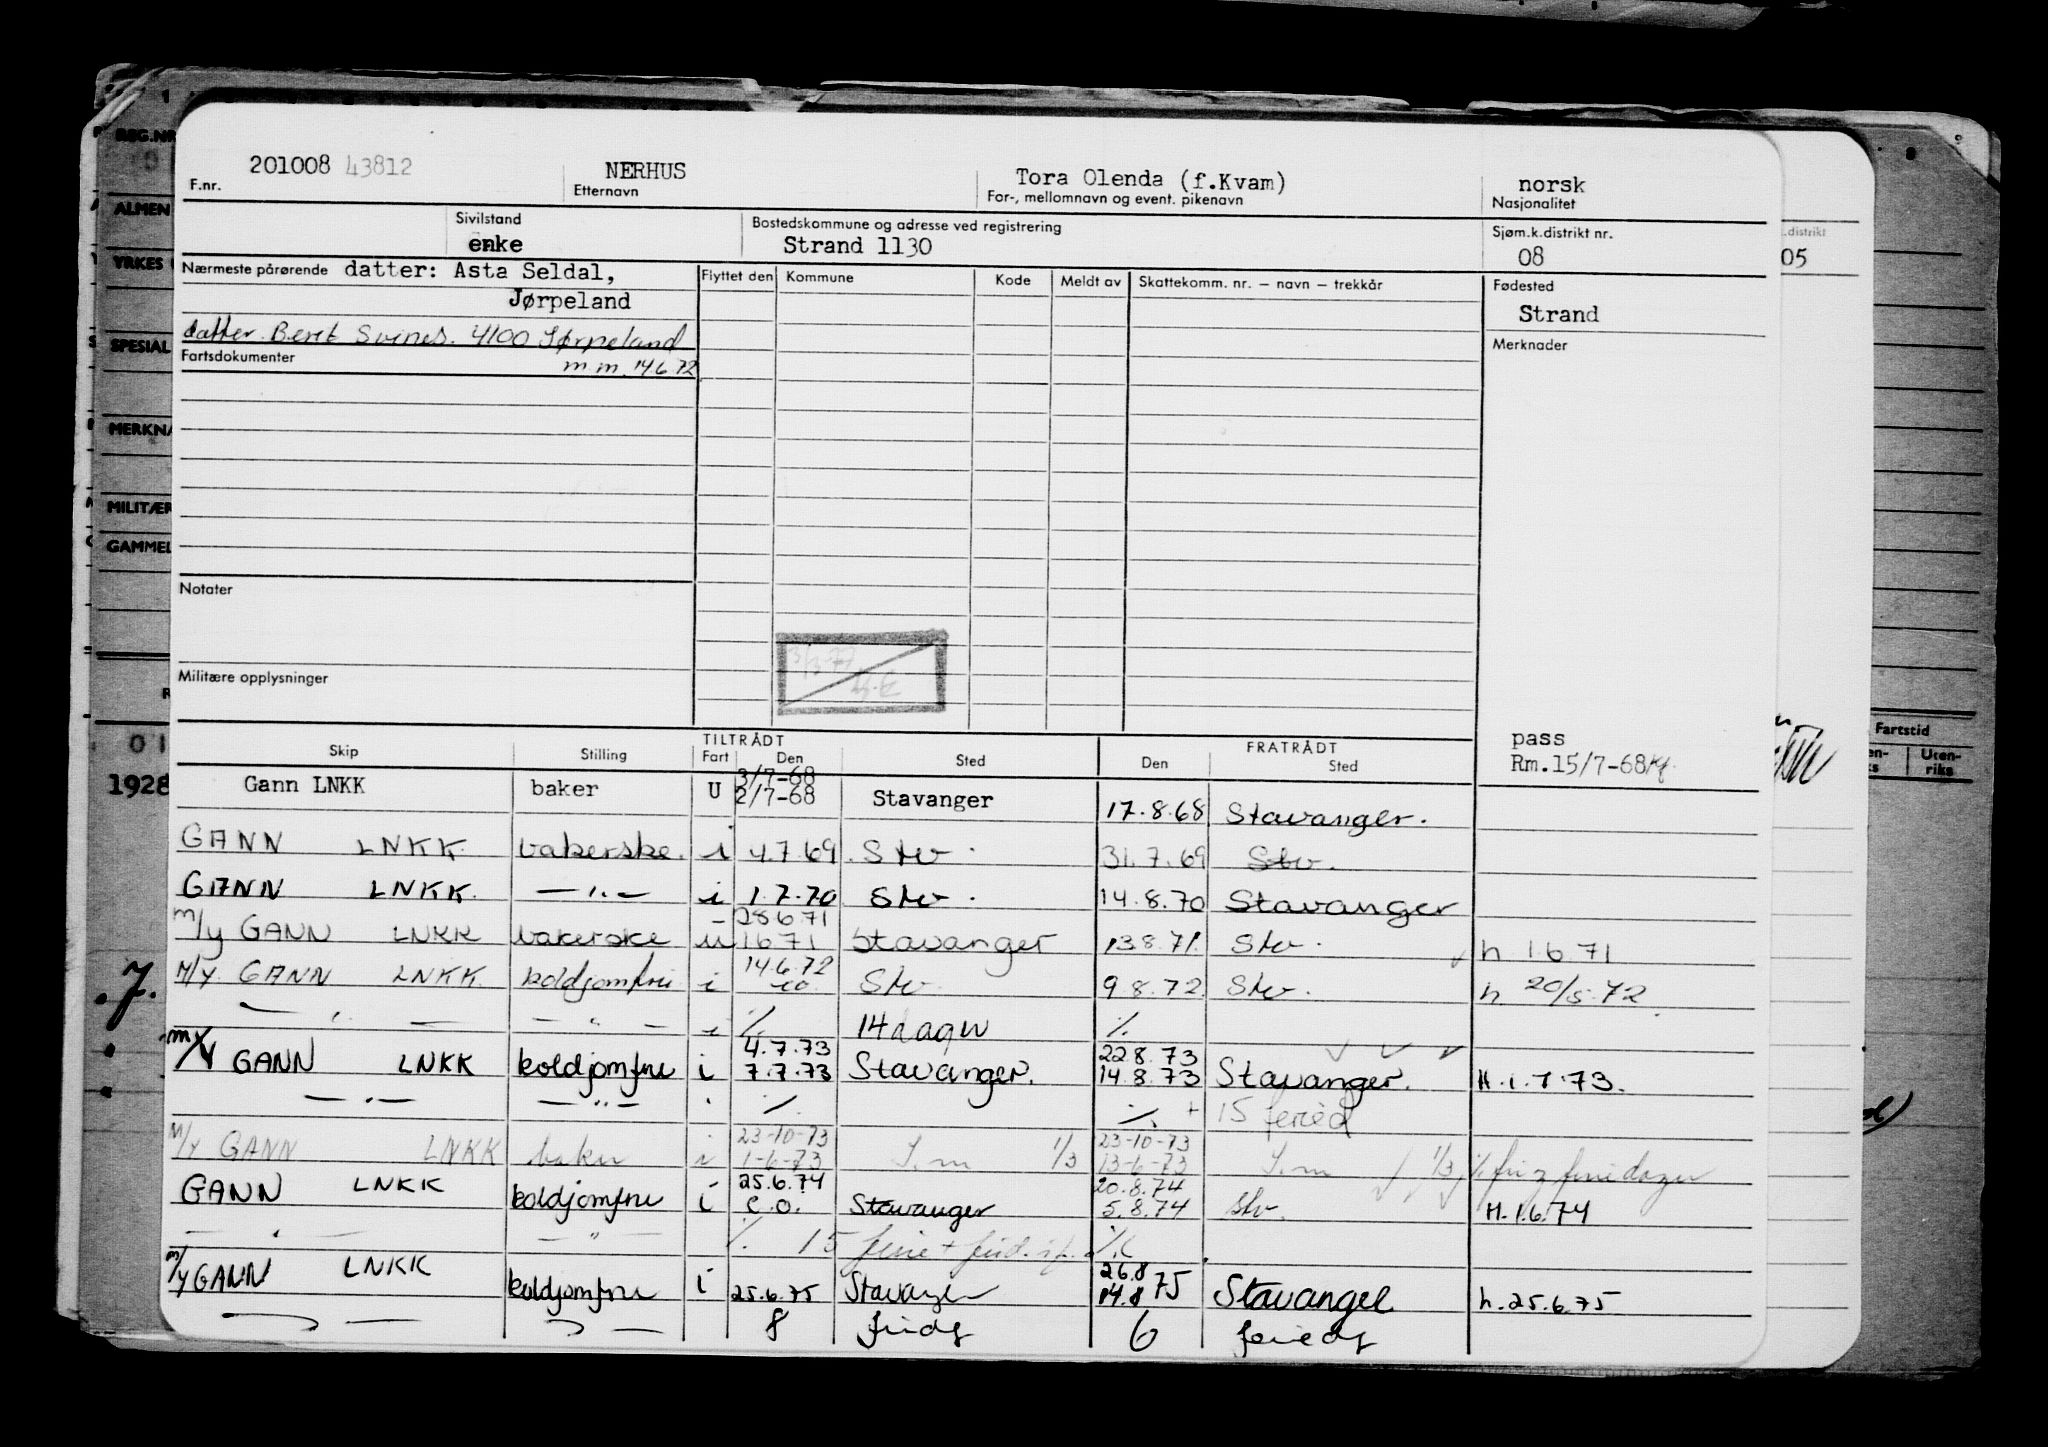 201008 43812 NERHUS Tora Olenda (f.Kvam) norsk
F.nr. Etternavn For-, mellomnavn og event. pikenavn Nasjonalitet
Sivilstand Bostedskommune og adresse ved registrering Sjøm.k.distrikt nr. distrikt
enke Strand 1130 08 05
Nærmeste pårørende datter: Asta Seldal, Flyttet den Kommune Kode Meldt av Skattekomm. nr. – navn – trekkår Fødested
Jørpeland Strand
datter Beret Svines. 4100 Jørpeland Merknader
Fartsdokumenter m m. 14.6.72
Notater
3/3-77
Militære opplysninger
TILTRÅDT FRATRÅDT pass
Skip Stilling Fart Den Sted Den Sted Rm.15/7-68
3/7-68
Gann LNKK baker U 2/7-68 Stavanger 17.8.68 Stavanger.
GANN LNKK. bakerske. i 4.7.69. Stv. 31.7.69 Stv.
GANN LNKK. — " — i 1.7.70 Stv. 14.8.70 Stavanger
— 28671
m/y GANN LNKK bakerske u 1671 Stavanger 13.8.71. Stv. h 1.6.71
14.6.72
M/Y. GANN LNKK. koldjomfru i eo. Stv. 9.8.72. Stv. h 20/5.72
— " — — " — i % 14 dager %
4.7.73 228.73
m/y GANN LNKK koldjomfru i 7.7.73 Stavanger. 14.8.73 Stavanger. H.1.7.73.
— " — — " — % % + 15 feried
23-10-73 23-10-73
m/y GANN LNKK baker i 1-6-73 S.m 1/3 13-6-73 S.m 1/3 % fri z feriedager
25.6.74 20.8.74
GANN LNKK koldjomfru i e.o. Stavanger 5.8.74 Stv. H.1.6.74
— " — — " — % 15 ferie + %
26.8
m/y GANN LNKK koldjomfru i 25.6.75 Stavanger 14.8 75 Stavanger h.25.6.75
8 6
REG.NR
ALMEN
YRKES
SPESIAL
MERKNA
MILITÆR
GAMMEL
01
1928
.7.
Fartstid
Uten-
riks